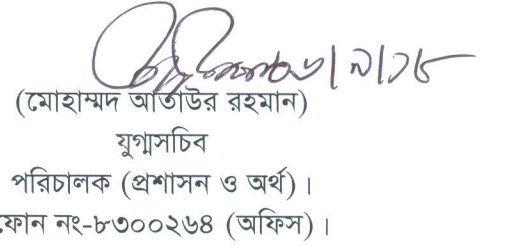 (মোহাম্মদ আতাউর রহমান)
যুগ্মসচিব
পরিচালক (প্রশাসন ও অর্থ)।
ফোন নং-৮৩০০২৬৪ (অফিস)।